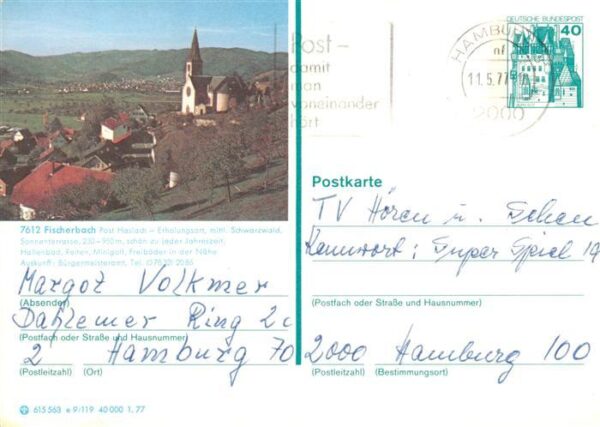 Post –
damit
man
voneinander
hört
HAMBURG
nf
11.5.77
2000
DEUTSCHE BUNDESPOST
40
7612 Fischerbach Post Haslach – Erholungsort, mittl. Schwarzwald,
Sonnenterrasse, 230–950m, schön zu jeder Jahreszeit,
Hallenbad, Reiten, Minigolf, Freibäder in der Nähe
Auskunft: Bürgermeisteramt, Tel. (07832) 2086
Margot Volkmer
(Absender)
Dahlemer Ring 2c
(Postfach oder Straße und Hausnummer)
2 Hamburg 70
(Postleitzahl) (Ort)
615 563 e 9/119 40 000 1.77
Postkarte
TV Hören u. Sehen
Kennwort: Super Spiel 19
(Postfach oder Straße und Hausnummer)
2000 Hamburg 100
(Postleitzahl) (Bestimmungsort)